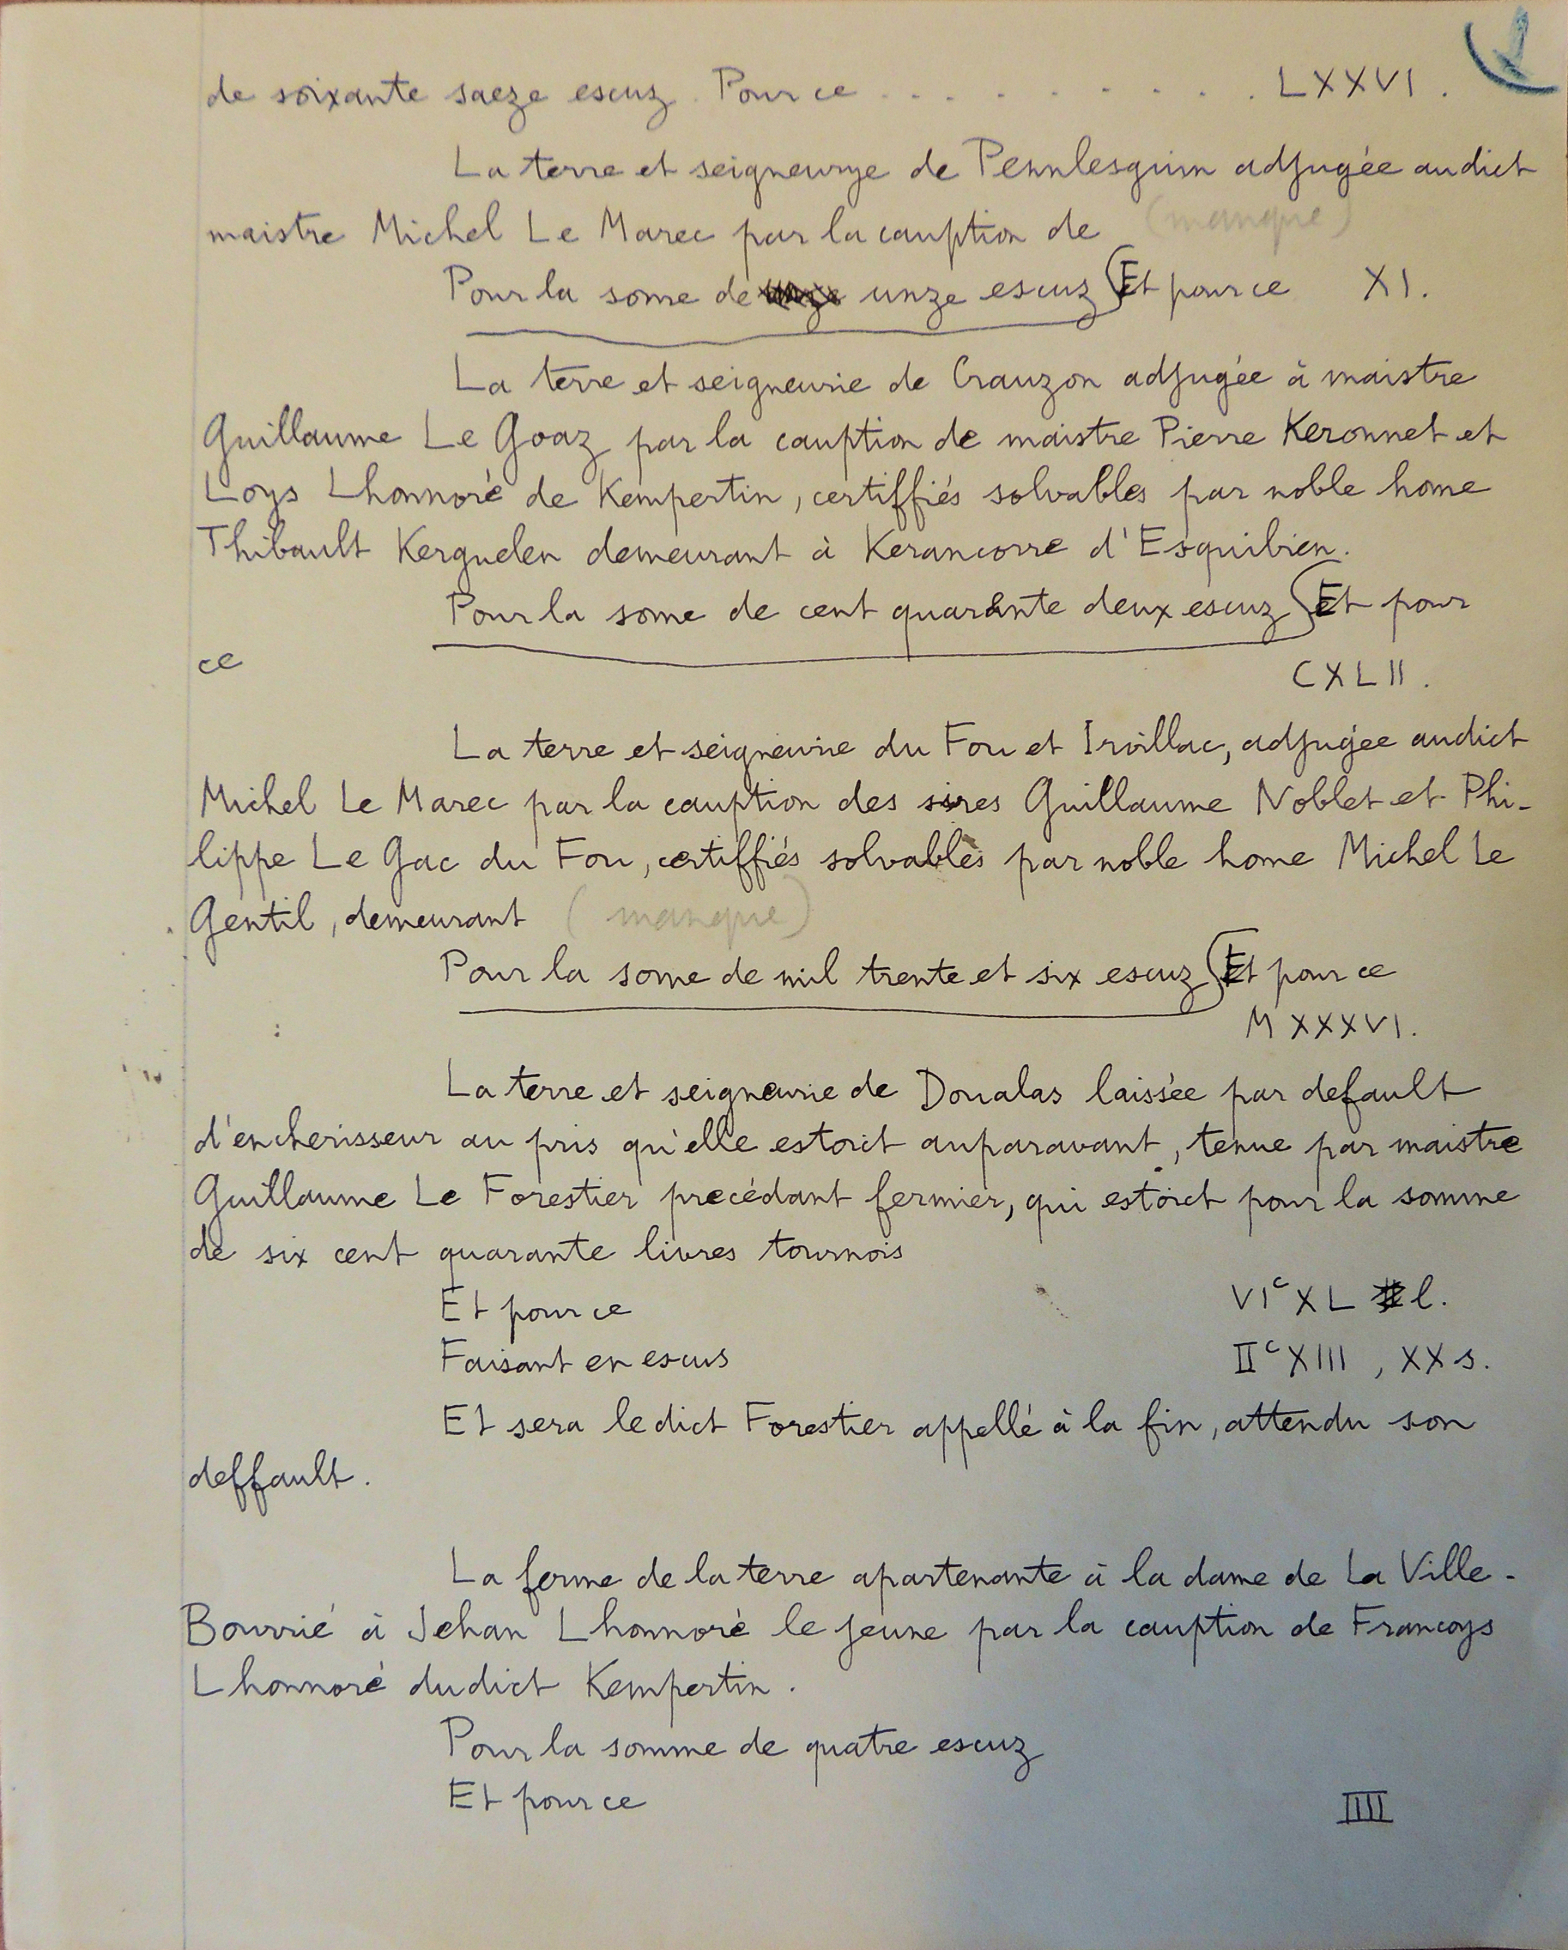 1
de soixante saeze escuz. Pour ce . . . . . . . . . . LXXVI.
La terre et seigneurye de Pennlesguin adjugée audict
maistre Michel Le Marec par la cauption de (manque)
Pour la some de unze escuz Et pour ce XI.
La terre et seigneurie de Crauzon adjugée à maistre
Guillaume Le Goaz par la cauption de maistre Pierre Keronnet et
Loys Lhonnoré de Kempertin, certiffiés solvables par noble home
Thibault Kerguelen demeurant à Kerancorre d'Esquibien.
Pour la some de cent quarante deux escuz Et pour
ce
CXLII.
La terre et seigneurie du Fou et Irvillac, adjugée audict
Michel Le Marec par la cauption des sires Guillaume Noblet et Phi-
lippe Le Gac du Fou, certiffiés solvables par noble home Michel Le
Gentil, demeurant (manque)
Pour la some de mil trente et six escuz Et pour ce
MXXXVI.
La terre et seigneurie de Doualas laissée par default
d'encherisseur au pris qu'elle estoict auparavant, tenue par maistre
Guillaume Le Forestier precédant fermier, qui estoict pour la somme
de six cent quarante livres tournois
Et pour ce VIᶜXL l.
Faisant en escus IIᶜXIII, XX s.
Et sera ledict Forestier appellé à la fin, attendu son
deffault.
La ferme de la terre apartenante à la dame de La Ville-
Bourrié à Jehan Lhonnoré le jeune par la cauption de Francoys
Lhonnoré dudict Kempertin.
Pour la somme de quatre escuz
Et pour ce IIII